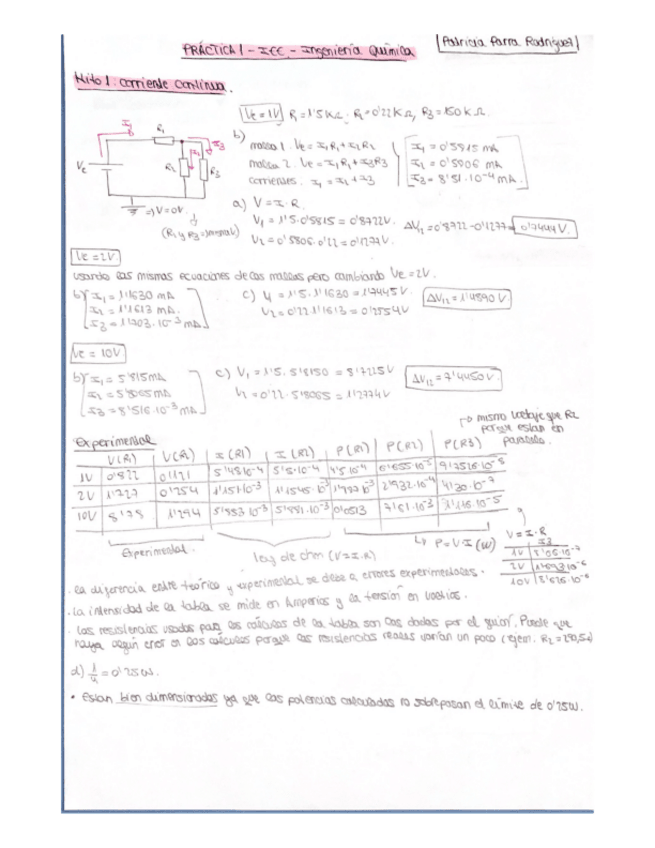 PRÁCTICA 1 - ICC - Ingeniería Química
Patricia Parra Rodríguez
Hito 1: Corriente continua.
Ve = 1V R1 = 1'5 KΩ · R2 = 0'22 KΩ, R3 = 150 KΩ.
I1
R1
I3
R2
R3
Ve
=> V = 0V.
b)
malla 1. Ve = I1R1 + I2R2
malla 2. Ve = I1R1 + I3R3
corrientes. I1 = I2 + I3
I1 = 0'5815 mA
I2 = 0'5806 mA
I3 = 8'51·10-4 mA.
a) V = I·R.
V1 = 1'5·0'5815 = 0'8722V.
V2 = 0'5806·0'22 = 0'1277V.
ΔV12 = 0'8722 - 0'1277 = 0'7444V.
Ve = 2V
usando las mismas ecuaciones de las mallas pero cambiando Ve = 2V.
b) I1 = 1'1630 mA
I2 = 1'1613 mA.
I3 = 1'1703·10-3 mA.
c) V1 = 1'5·1'1630 = 1'7445V.
V2 = 0'22·1'1613 = 0'2554V
ΔV12 = 1'4890 V.
Ve = 10V
b) I1 = 5'815 mA
I2 = 5'8065 mA
I3 = 8'516·10-3 mA.
c) V1 = 1'5·5'8150 = 8'7225V
V2 = 0'22·5'8065 = 1'2774V
ΔV12 = 7'4450V.
mismo voltaje que R2
porque estan en
paralelo.
Experimental
V(R1) V(R2) I(R1) I(R2) P(R1) P(R2) P(R3)
1V 0'822 0'121 5'48·10-4 5'5·10-4 4'5·10-4 6'655·10-5
2V 1'727 0'254 1'151·10-3 2'932·10-4 4'30·10-7
10V 8'78 1'294 5'853·10-3 5'881·10-3 0'0513 7'61·10-3 1'116·10-5
Experimental.
ley de ohm (V = I·R)
P = V·I (W)
V = I·R
I3
1V 8'06·10-7
2V 1'693·10-6
10V 8'626·10-6
· La diferencia entre teórico y experimental se debe a errores experimentales.
· La intensidad de la tabla se mide en Amperios y la tensión en voltios.
· Las resistencias usadas para los cálculos de la tabla son las dadas por el guión. Puede que
haya algún error en los cálculos porque las resistencias reales varían un poco (ejem. R2 =
d) 1/4 = 0'25W.
• Estan bien dimensionadas ya que las potencias calculadas no sobrepasan el límite de 0'25W.